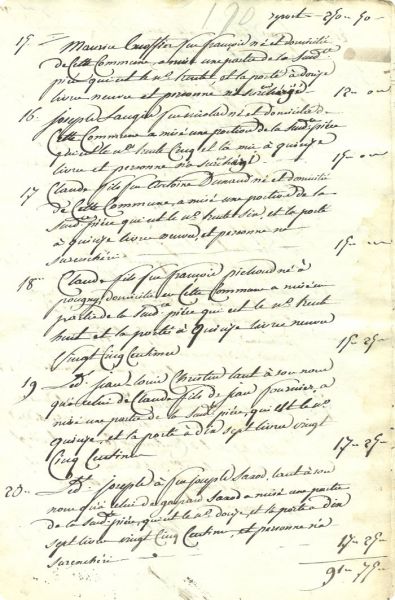 190
report 250 - 50
15 Maurice feu françois né et domicilié
de Cette Commune, a mise une partie de la Sud.te
pièce qui est le n.o huit et la porté à douze
livre neuve et personne n'a surchargé 12 -
16 Joseph feu nicolas né et domicilié de
Cette Commune a misé une portion de la sud.te pièce
qui est le n.o huit Cinq et la mis à quinze
livre et personne n'a surchargé 15 -
17 Claude fils feu Antoine Dunand né et domicilié
de Cette Commune, a misé une portion de la
Sud.te pièce qui est le n.o huit Six, et la porté
à quinze livre neuve, et personne n'a
surenchéri 15 -
18 Claude fils feu françois né à
pougny, domicilié en Cette Commune a misé un
partie de la Sud.te pièce qui est le n.o huit
huit et la portée à quinze livres neuve
Vingt Cinq Centime 15 - 25
19 Led.t jean Louis tant à son nom
qu'à celui de Claude fils de jean fournier, a
misé une partie de la Sud.te pièce, qui est le n.o
quinze, et la porté à dix sept livre vingt
Cinq Centime 17 - 25
20 Led.t joseph à feu joseph tant à son
nom qu'à celui de gaspard a misé une partie
de la Sud.te pièce, qui est le n.o douze, et la porté a dix
sept livre vingt Cinq Centime, et personne n'a
surenchéri 17 - 25
91 - 75